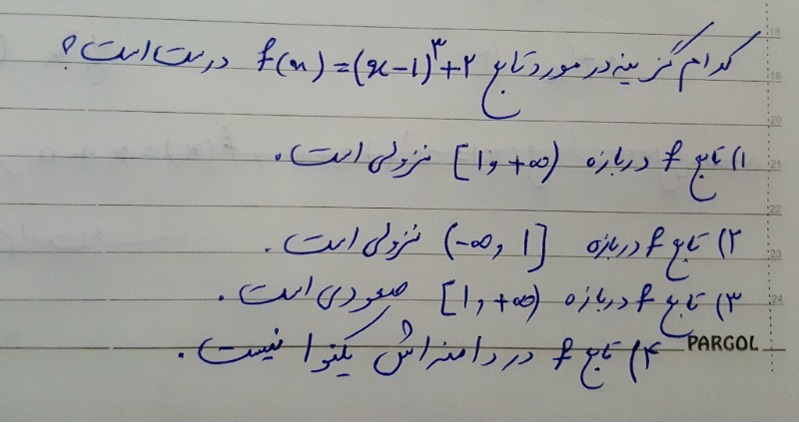 کدام گزینه در مورد تابع f(x)=(x-1)^۳+۲ درست است؟
۱) تابع f در بازه [1, +∞) نزولی است.
۲) تابع f در بازه (-∞, 1] نزولی است.
۳) تابع f در بازه [1, +∞) صعودی است.
۴) تابع f در دامنه‌اش یکنوا نیست.
PARGOL
18
19
20
21
22
23
24